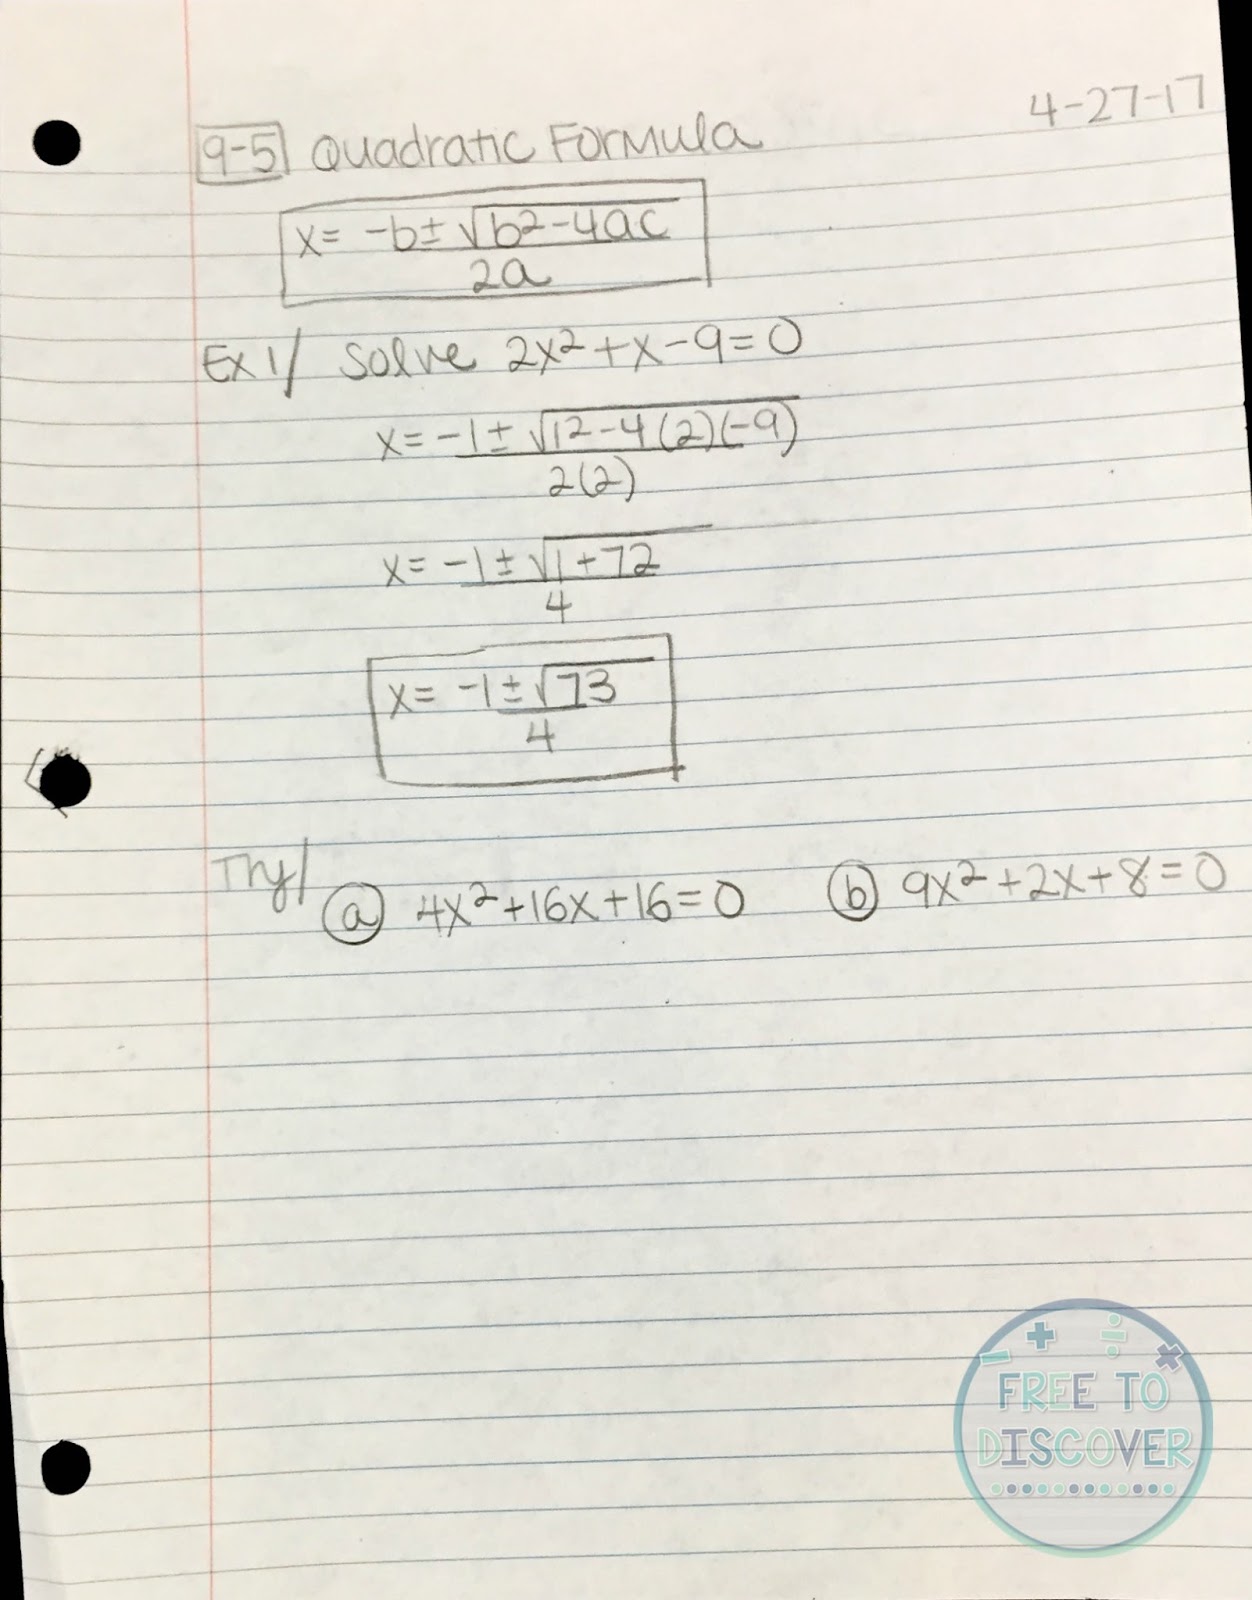 4-27-17
9-5 Quadratic Formula
x = -b ± √b²-4ac
2a
Ex 1/ Solve 2x² + x - 9 = 0
x = -1 ± √1²-4(2)(-9)
2(2)
x = -1 ± √1+72
4
x = -1 ± √73
4
Try/
ⓐ 4x² + 16x + 16 = 0 ⓑ 9x² + 2x + 8 = 0
FREE TO
DISCOVER